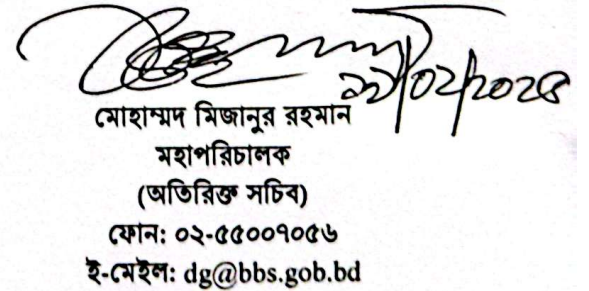 মোহাম্মদ মিজানুর রহমান
মহাপরিচালক
(অতিরিক্ত সচিব)
ফোন: ০২-৫৫০০৭০৫৬
ই-মেইল: dg@bbs.gob.bd